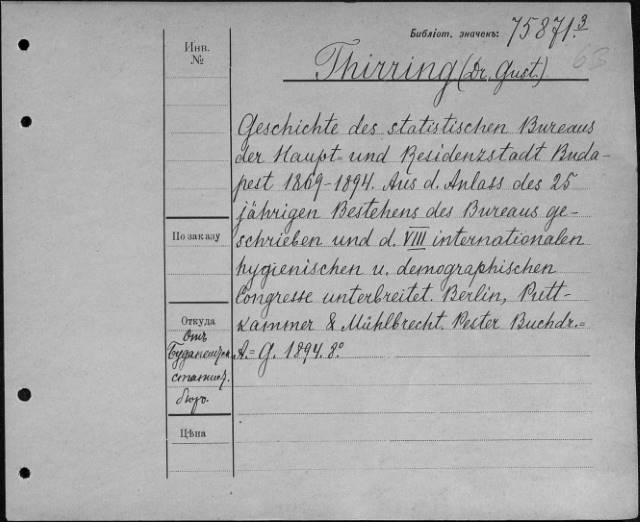 Библіот. значекъ: 75871.3
Инв.
№
66
Thirring (Dr. Gust.)
Geschichte des statistischen Bureaus
der Haupt- und Residenzstadt Buda-
pest 1869-1894. Aus d. Anlass des 25
jährigen Bestehens des Bureaus ge-
schrieben und d. VIII internationalen
hygienischen u. demographischen
Congresse unterbreitet. Berlin, Putt-
kammer & Mühlbrecht. Pester Buchdr.=
A.= G. 1894. 8°
По заказу
Откуда
Отъ
статист.
бюро.
Цѣна